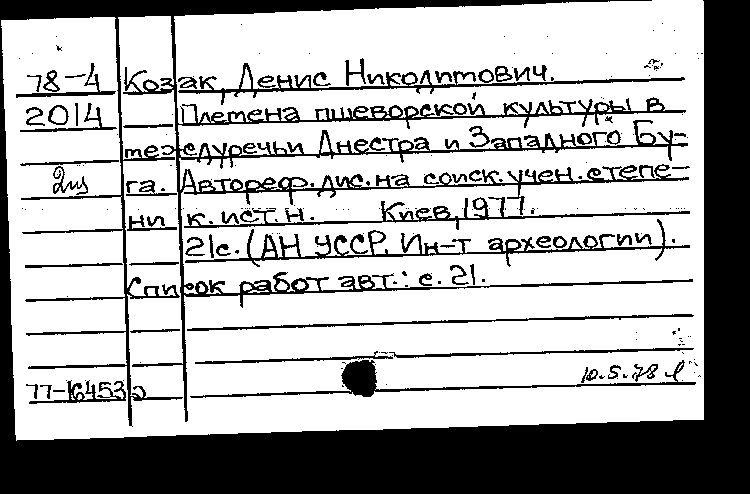 78-4 Козак, Денис Никодимович.
2014 Племена пшеворской культуры в
междуречьи Днестра и Западного Бу-
га. Автореф. дис. на соиск. учен. степе-
ни к. ист. н. Киев, 1977.
21с. (АН УССР. Ин-т археологии).
Список работ авт.: с. 21.
77-16453
10.5.78